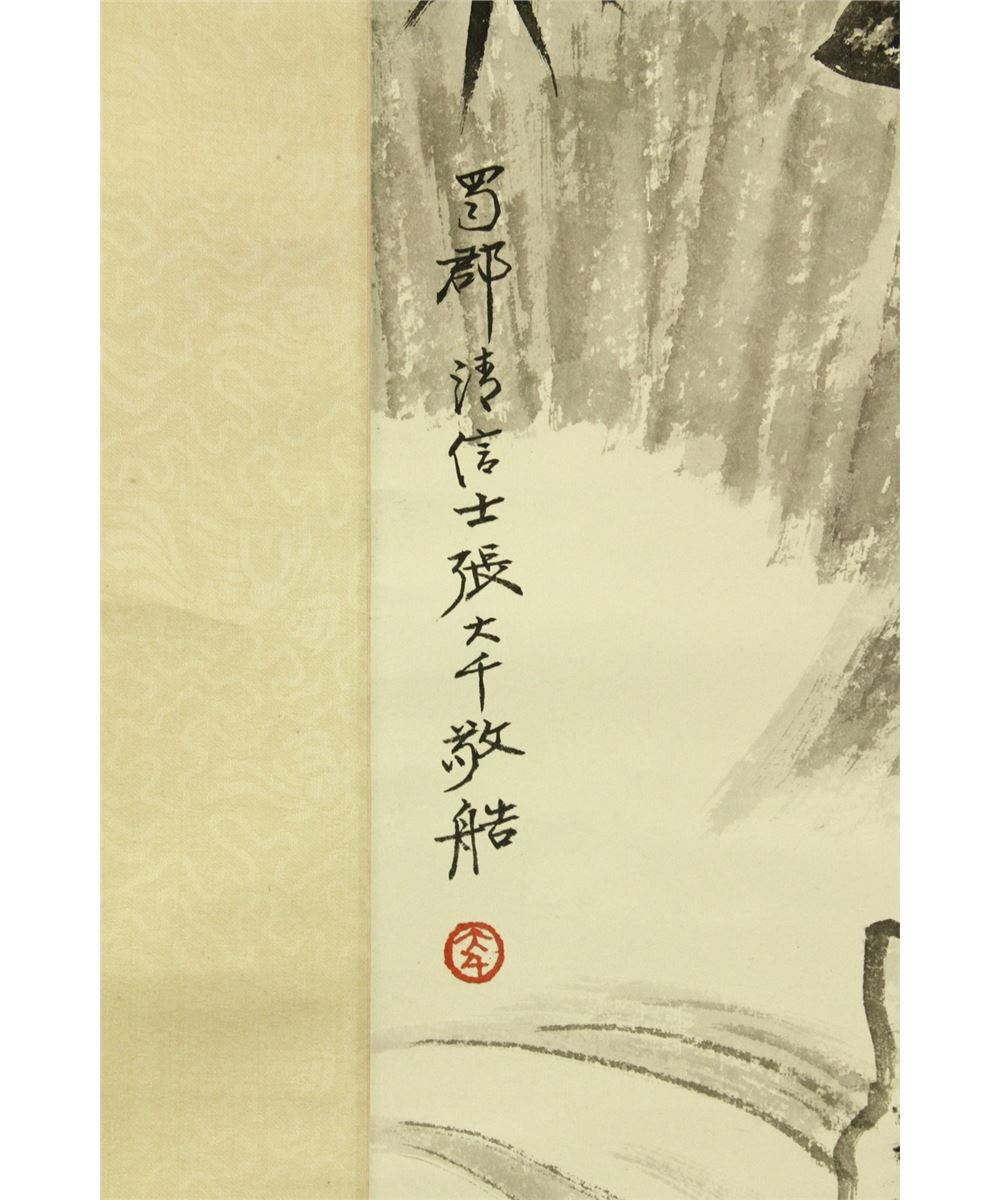 蜀郡清信士張大千敬造
大千